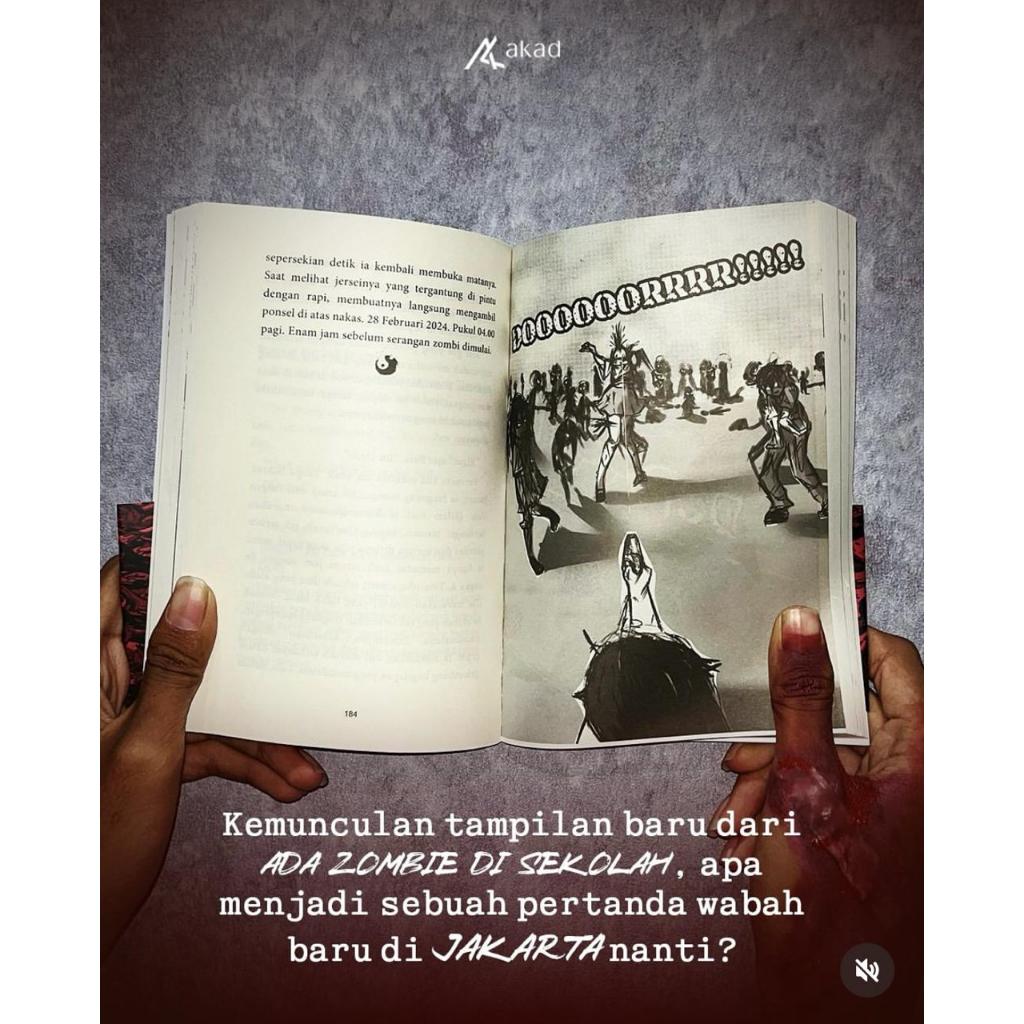 akad
sepersekian detik ia kembali membuka matanya.
Saat melihat jerseinya yang tergantung di pintu
dengan rapi, membuatnya langsung mengambil
ponsel di atas nakas. 28 Februari 2024. Pukul 04.00
pagi. Enam jam sebelum serangan zombi dimulai.
184
OOOOOOORRRR!!!!!
Kemunculan tampilan baru dari
ADA ZOMBIE DI SEKOLAH, apa
menjadi sebuah pertanda wabah
baru di JAKARTA nanti?